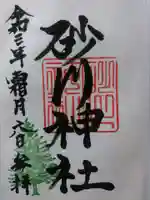 砂川神社
令三年霜月八日参拝